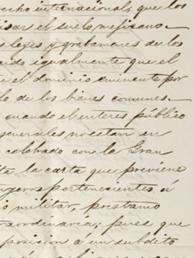 echo internacional, que los
pisar el suelo mejicano
s leyes y gravamenes de los
ado igualmente que el
el dominio eminente por
lo de los bienes comunes.
cuando el interes publico
generales precetan en
celebrado con la Gran
ta la carta que previene
ngeros pertenecientes á
o militar, prestamo
raordinaria; pues que
á un subdito